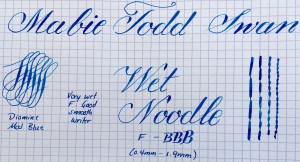 Mabie Todd Swan
Diamine
Med Blue
Very wet
F Good
smooth
writer
Wet
Noodle
F - BBB
(0.4mm - 1.9mm)